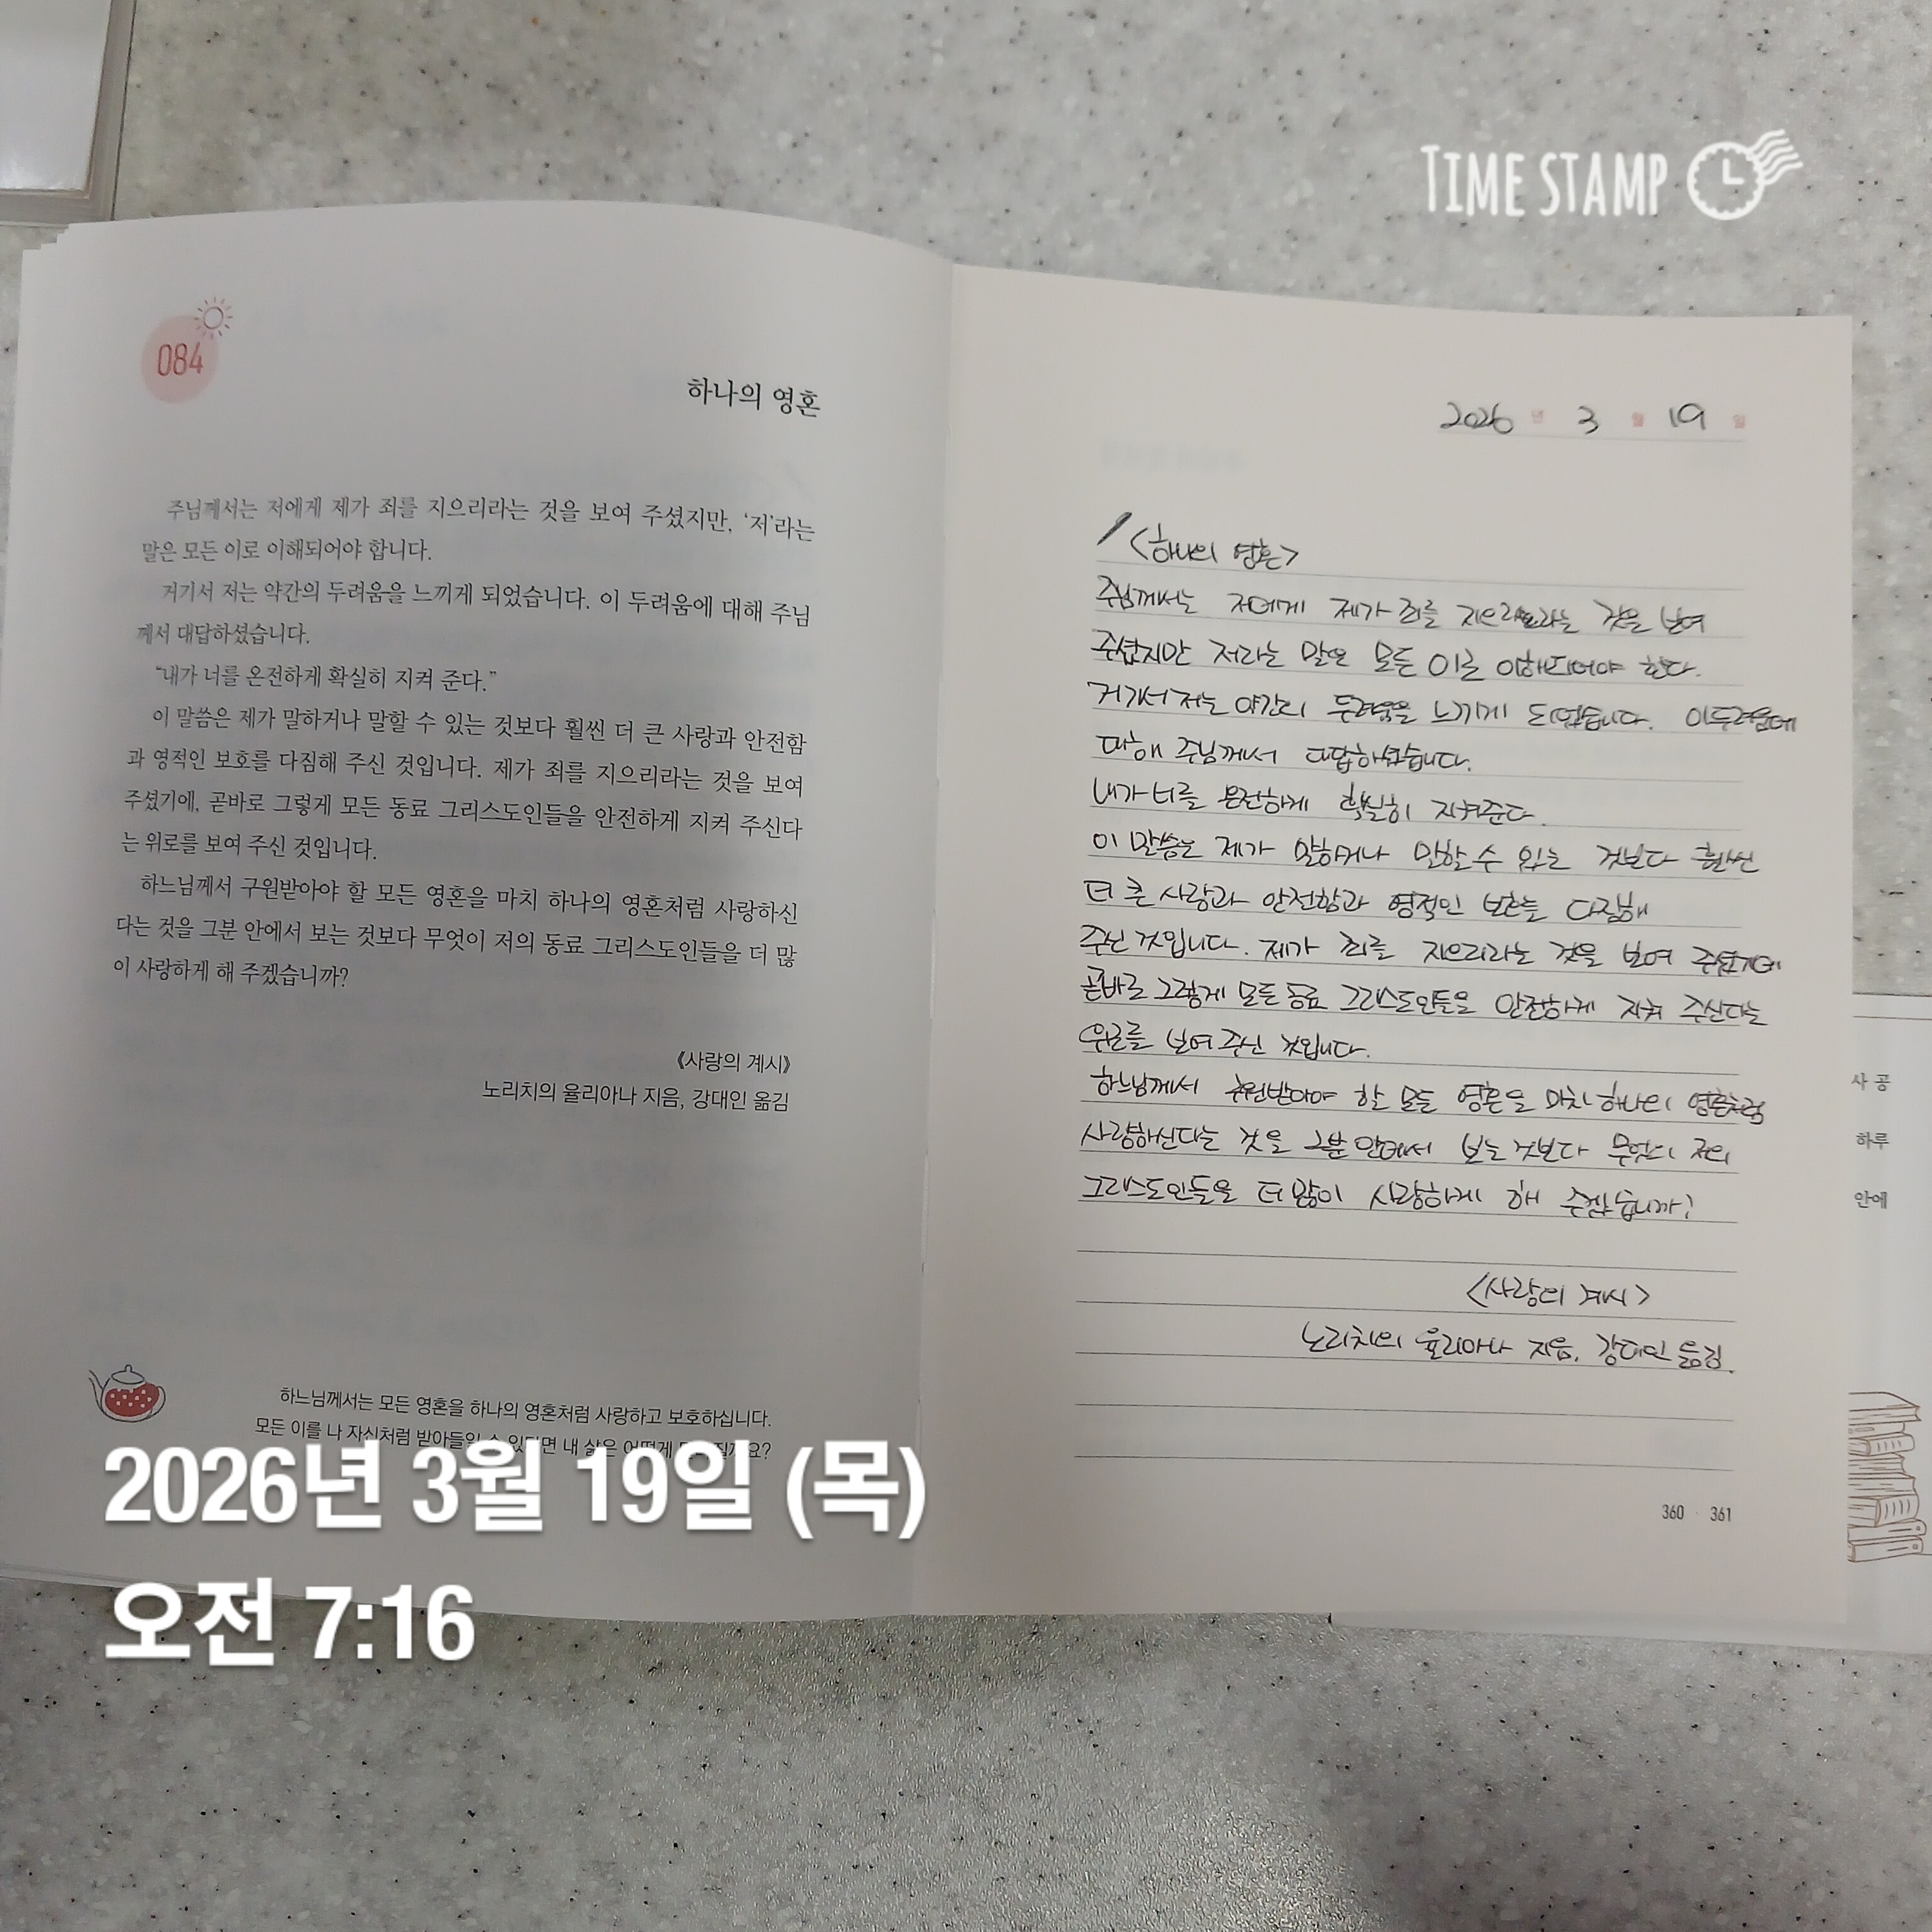 TIME STAMP
084
하나의 영혼
주님께서는 저에게 제가 죄를 지으리라는 것을 보여 주셨지만, ‘저’라는
말은 모든 이로 이해되어야 합니다.
거기서 저는 약간의 두려움을 느끼게 되었습니다. 이 두려움에 대해 주님
께서 대답하셨습니다.
“내가 너를 온전하게 확실히 지켜 준다.”
이 말씀은 제가 말하거나 말할 수 있는 것보다 훨씬 더 큰 사랑과 안전함
과 영적인 보호를 다짐해 주신 것입니다. 제가 죄를 지으리라는 것을 보여
주셨기에, 곧바로 그렇게 모든 동료 그리스도인들을 안전하게 지켜 주신다
는 위로를 보여 주신 것입니다.
하느님께서 구원받아야 할 모든 영혼을 마치 하나의 영혼처럼 사랑하신
다는 것을 그분 안에서 보는 것보다 무엇이 저의 동료 그리스도인들을 더 많
이 사랑하게 해 주겠습니까?
《사랑의 계시》
노리치의 율리아나 지음, 강대인 옮김
하느님께서는 모든 영혼을 하나의 영혼처럼 사랑하고 보호하십니다.
모든 이를 나 자신처럼 받아들일 수 있다면 내 삶은 어떻게
2026년 3월 19일 (목)
오전 7:16
2026 년 3 월 19 일
<하나의 영혼>
주님께서는 저에게 제가 죄를 지으리라는 것을 보여
주셨지만 저라는 말은 모든 이로 이해되어야 한다.
거기서 저는 약간의 두려움을 느끼게 되었습니다. 이두려움에
대해 주님께서 대답하셨습니다.
내가 너를 온전하게 확실히 지켜준다.
이 말씀은 제가 말하거나 말할 수 있는 것보다 훨씬
더 큰 사랑과 안전함과 영적인 보호를 다짐해
주신 것입니다. 제가 죄를 지으리라는 것을 보여 주셨기에
곧바로 그렇게 모든 동료 그리스도인들을 안전하게 지켜 주신다는
위로를 보여 주신 것입니다.
하느님께서 구원받아야 할 모든 영혼을 마치 하나의 영혼처럼
사랑하신다는 것을 그분 안에서 보는 것보다 무엇이 저의
그리스도인들을 더 많이 사랑하게 해 주겠습니까?
<사랑의 계시>
노리치의 율리아나 지음, 강대인 옮김.
360 · 361
사 공
하루
안에